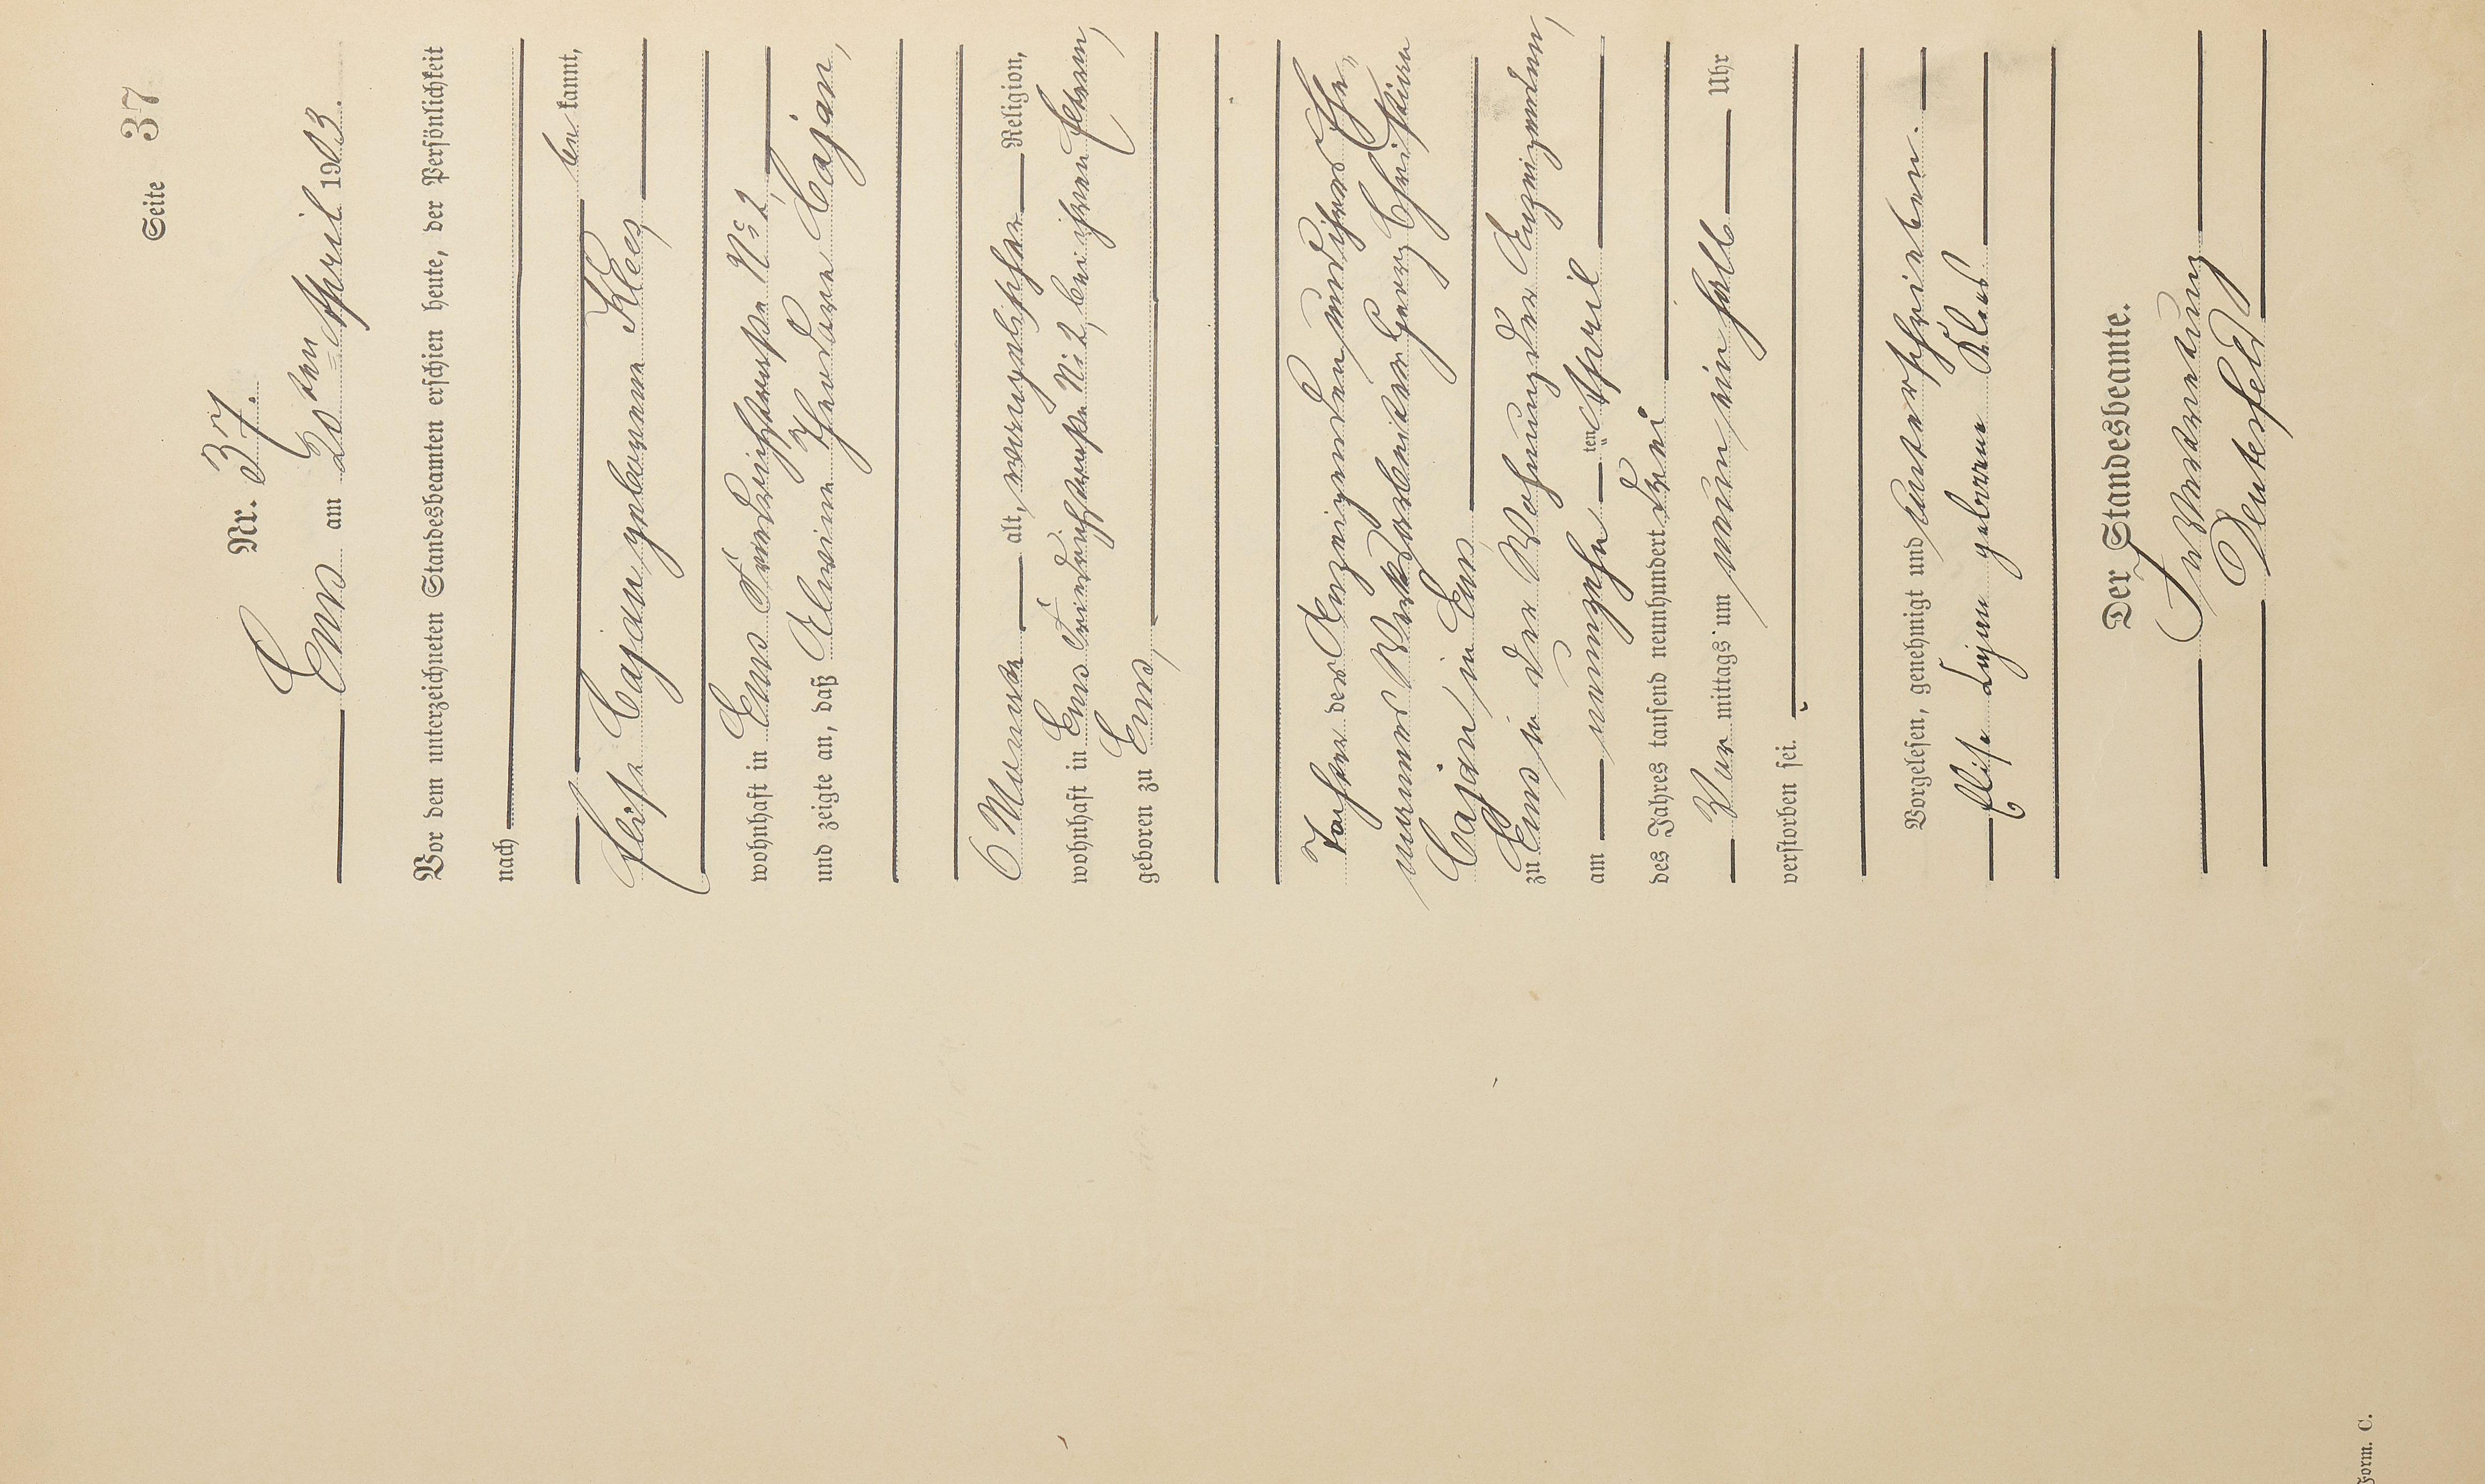 Seite 37
Nr. 37.
Ems am 20ten April 1903.
Vor dem unterzeichneten Standesbeamten erschien heute, der Persönlichkeit
nach
be kannt,
Elise Cajan geborene Klees,
wohnhaft in Ems Friedrichstraße No 2,
und zeigte an, daß Alwine Theodore Cajan,
6 Monate alt, evangelischer Religion,
wohnhaft in Ems Friedrichstraße No 2, bei ihren Eltern,
geboren zu Ems,
Tochter der Anzeigenden und ihres Ehe-
mannes Werkzarbeiter Georg Christian
Cajan in Ems
zu Ems in der Wohnung der Anzeigenden,
am neunzehnten April
des Jahres tausend neunhundert drei
Vor mittags um neun ein halb Uhr
verstorben sei.
Vorgelesen, genehmigt und unterschrieben.
Elise Cajan geborene Klees
Der Standesbeamte.
In Vertretung
Deutesfeld
Form. C.